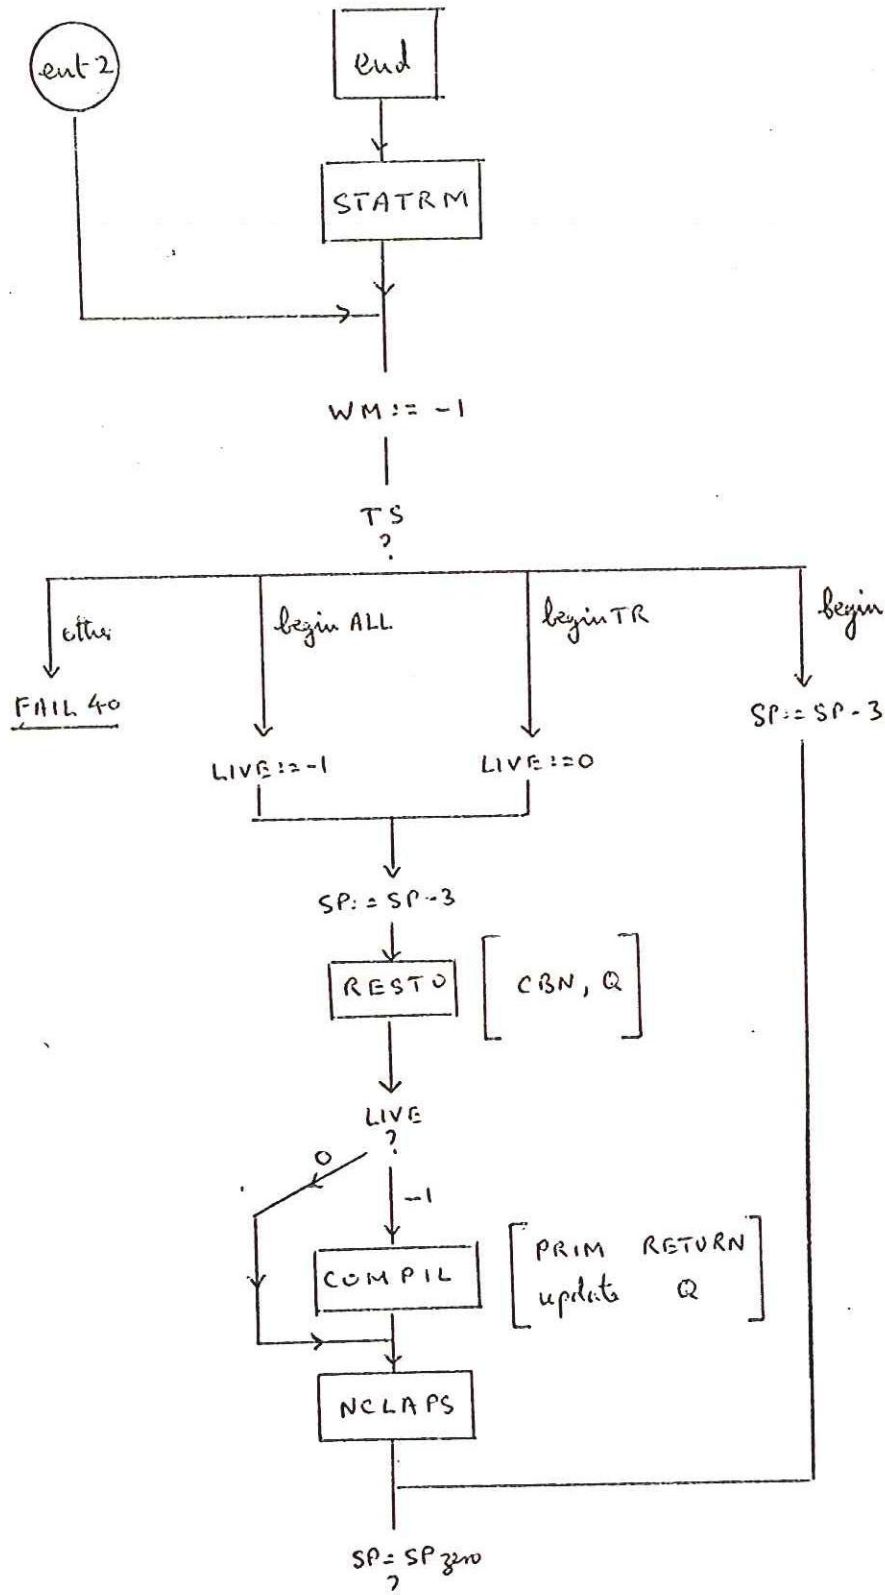 ent 2
end
STATRM
WM := -1
TS
?
other
begin ALL
begin TR
begin
FAIL 40
LIVE := -1
LIVE := 0
SP := SP - 3
SP := SP - 3
RESTO
CBN, Q
LIVE
?
0
-1
COMPIL
PRIM RETURN
update Q
NCLAPS
SP = SP zero
?